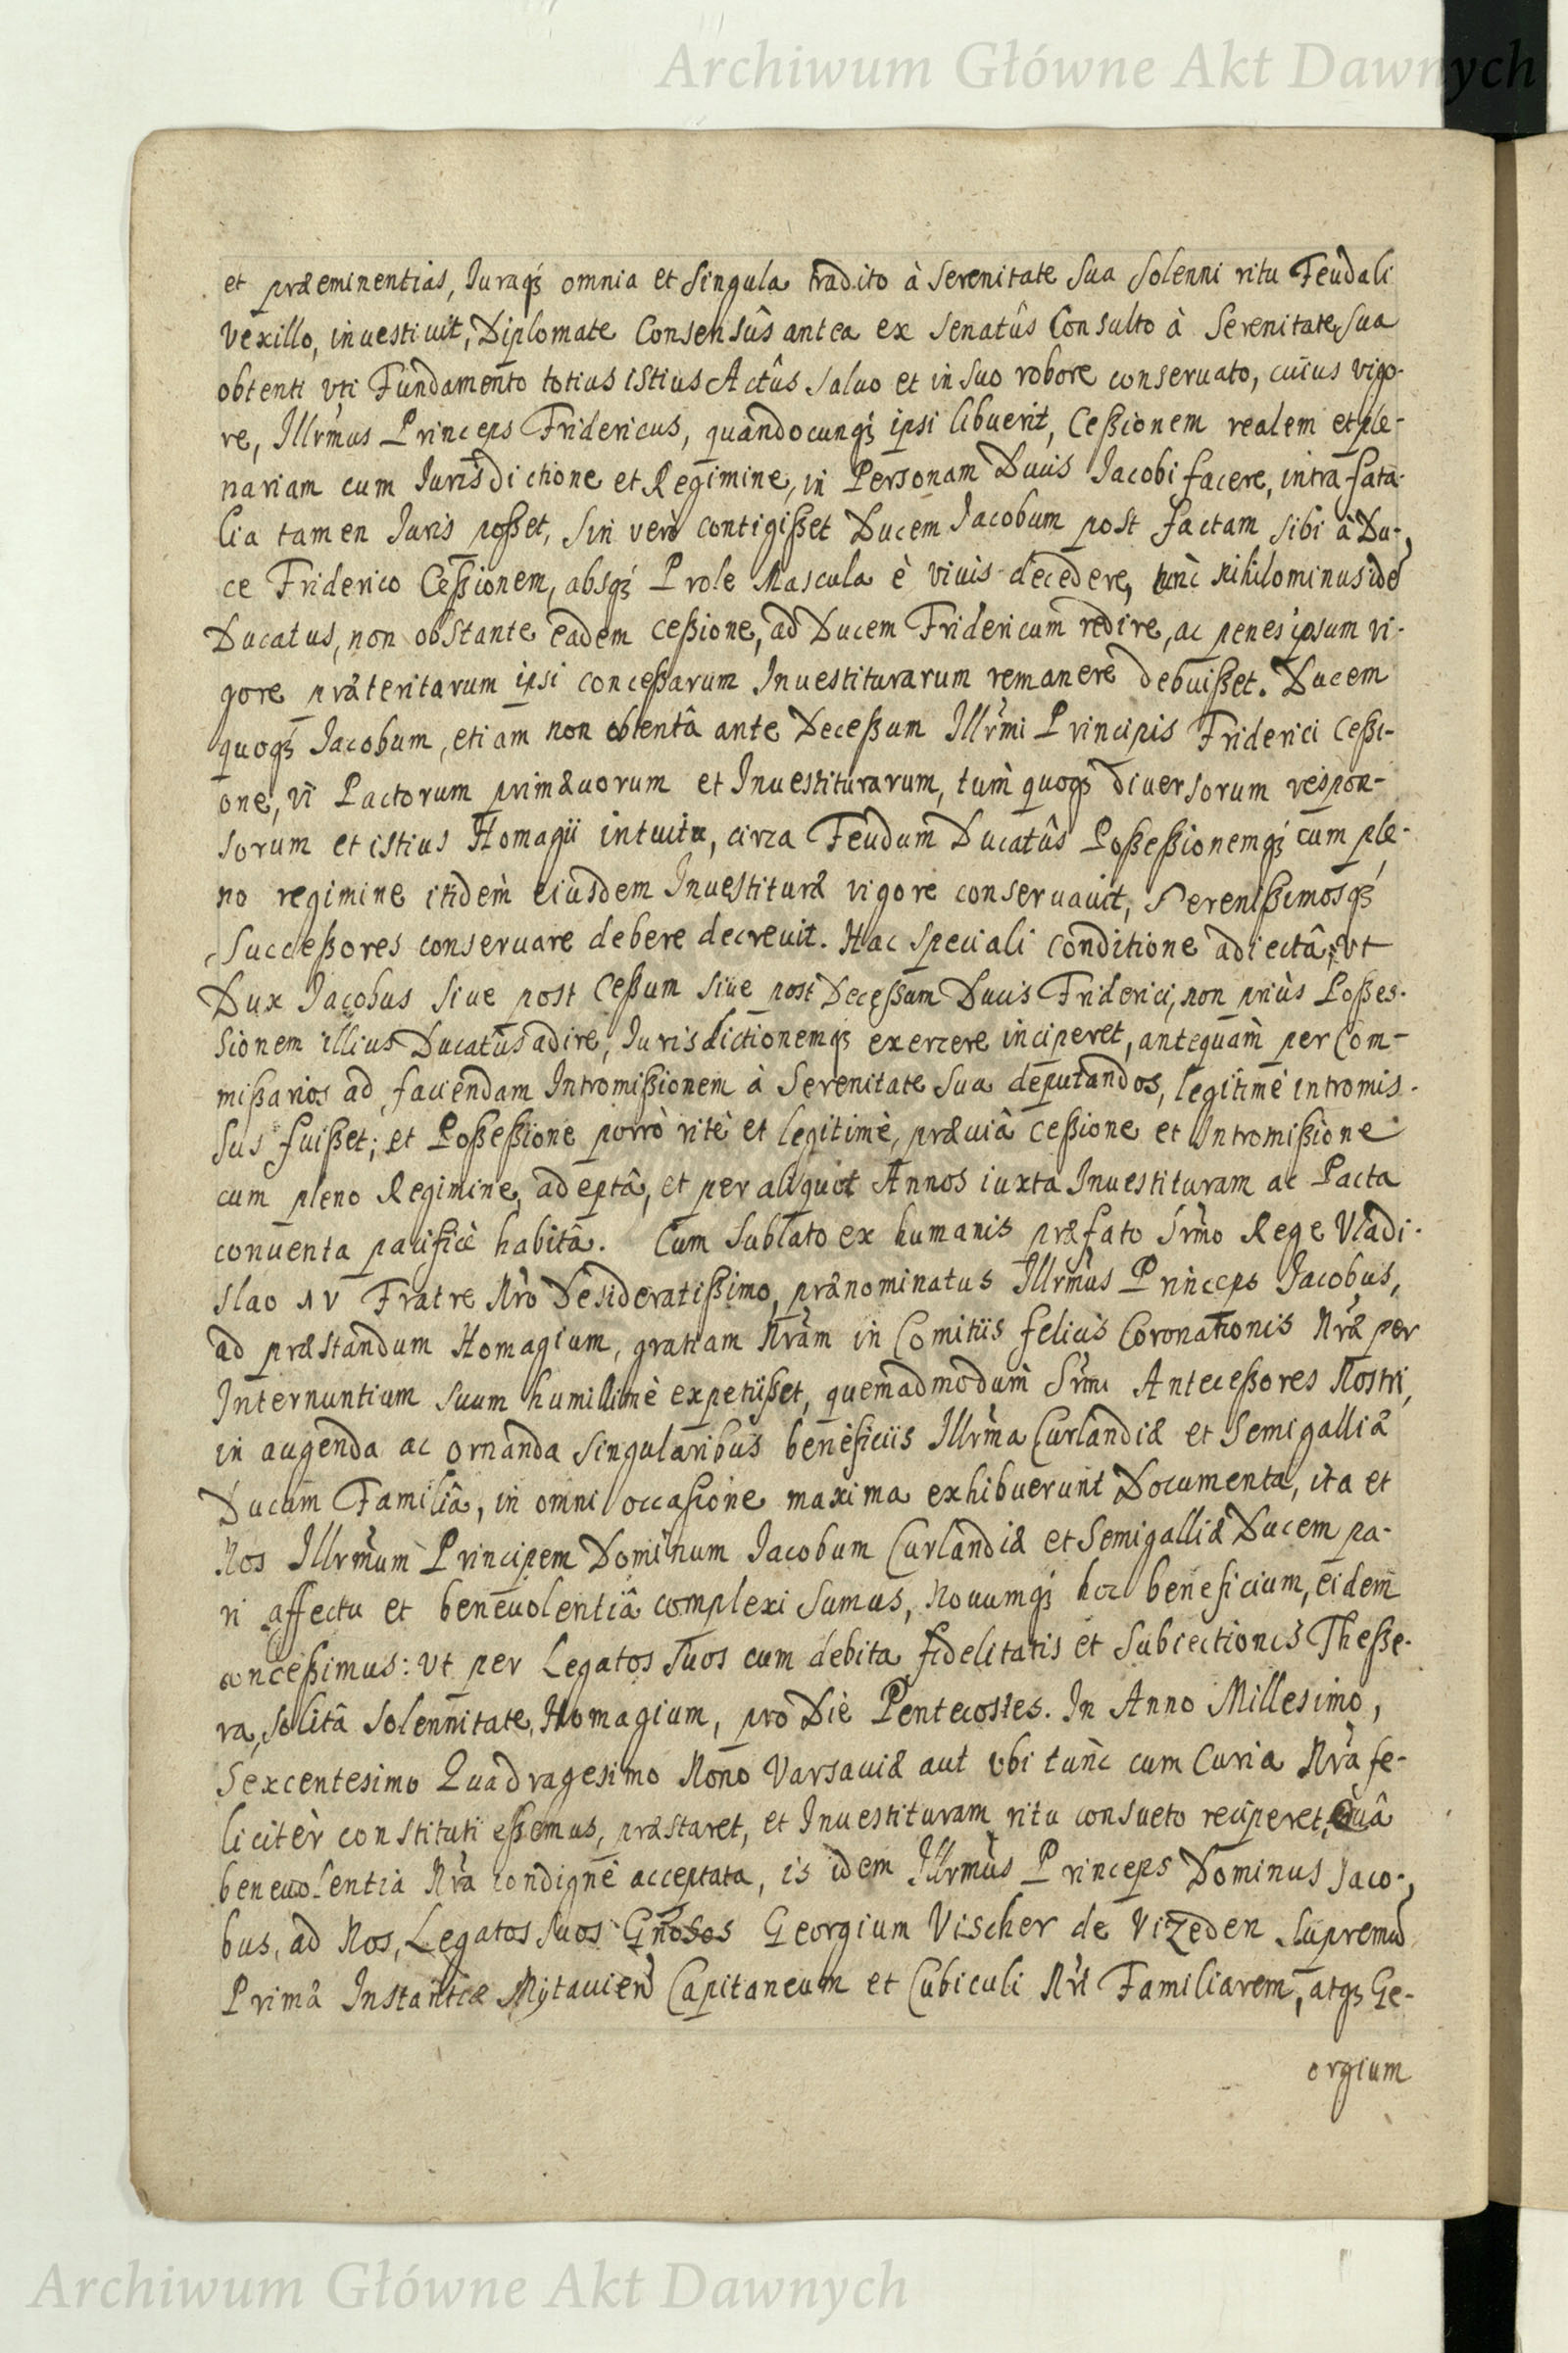 Archiwum Główne Akt Dawnych
et præeminentias, Iuraqꝫ omnia et singula tradito à Serenitate Sua Solenni ritu Feudali
Vexillo, inuestiuit, Diplomate Consensûs antea ex Senatûs Consulto à Serenitate Sua
obtenti vti Fundamento totius istius Actûs saluo et in suo robore conseruato, cuius vigo-
re, Illrmus Princeps Fridericus, quandocunqꝫ ipsi libuerit, Ceßionem realem et ple-
nariam cum Iurisdictione et Regimine, in Personam Ducis Iacobi facere, intra fata-
lia tamen Iuris poßet, Sin verò contigißet Ducem Iacobum post factam sibi à Du-
ce Friderico Ceßionem, absqꝫ Prole Mascula è viuis decedere, tunc nihilominus idē
Ducatus, non obstante eadem ceßione, ad Ducem Fridericum redire, ac penes ipsum vi-
gore præteritarum ipsi conceßarum Inuestiturarum remanere debuißet. Ducem
quoqꝫ Iacobum, etiam non obtentâ ante Deceßum Illrmi Principis Friderici Ceßi-
one, vi Pactorum primæuorum et Inuestiturarum, tum quoqꝫ diuersorum respon-
sorum et istius Homagii intuitu, circa Feudum Ducatûs Poßeßionemqꝫ cum ple-
no regimine itidem eiusdem Inuestituræ vigore conseruauit, Serenißimosqꝫ
Succeßores conseruare debere decreuit. Hac speciali conditione adiectâ, vt
Dux Iacobus siue post Ceßum siue post Deceßum Ducis Friderici, non priùs Poßes-
sionem illius Ducatûs adire, Iurisdictionemqꝫ exercere inciperet, antequam per Com-
mißarios ad faciendam Intromißionem à Serenitate Sua deputandos, legitimè intromis-
sus fuißet; et Poßeßione porrò ritè et legitimè, præuiâ ceßione et Intromißione
cum pleno Regimine, adeptâ, et per aliquot Annos iuxta Inuestituram ac Pacta
conuenta pacificè habitâ. Cum sublato ex humanis præfato Srmo Rege Vladi-
slao IV Fratre Nro Desideratißimo, prænominatus Illrmus Princeps Iacobus,
ad præstandum Homagium, gratiam Nram in Comitiis felicis Coronationis Nræ per
Internuntium suum humillimè expetiißet, quemadmodum Srmi Anteceßores Nostri,
in augenda ac ornanda singularibus beneficiis Illrma Curlandiæ et Semigalliæ
Ducum Familiâ, in omni occasione maxima exhibuerunt Documenta, ita et
Nos Illrmum Principem Dominum Iacobum Curlandiæ et Semigalliæ Ducem pa-
ri affectu et beneuolentiâ complexi sumus, nouumqꝫ hoc beneficium, eidem
conceßimus: vt per Legatos suos cum debita fidelitatis et subiectionis Theße-
ra, solitâ solennitate, Homagium, pro Die Pentecostes. In Anno Millesimo,
Sexcentesimo Quadragesimo Nono Varsauiæ aut vbi tunc cum Curia Nra fe-
licitèr constituti eßemus, præstaret, et Inuestituram ritu consueto reciperet, Quâ
beneuolentia Nra condignè acceptata, is idem Illrmus Princeps Dominus Iaco-
bus, ad Nos, Legatos suos Gnosos Georgium Vischer de Vizeden Supremū
Primæ Instantiæ Mytauien Capitaneum et Cubiculi Nri Familiarem, atqꝫ Ge-
orgium
Archiwum Główne Akt Dawnych